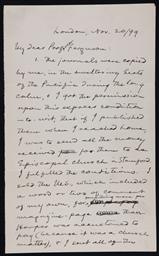 London, Nov. 20/99
My dear Profr Ferguson:
1. The journals were copied
by me, in the sweltry seas
of the Pacific during the long
calm, & I got the permission
upon this express condition
—to wit, that if I published
them when I reached home,
I was to send all the money
received to an
Episcopal church in Stamford.
I fulfilled the conditions. I
sold the MS. which included
a word or two of comment
of my own, for
magazine-page than
Harper was accustomed to
pay (because it was a church
matter), & I sent all of the